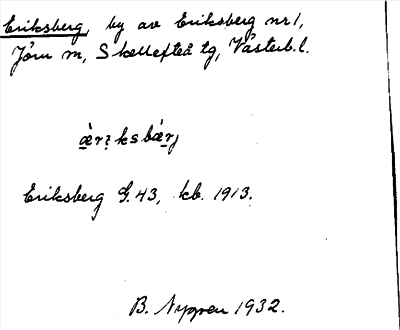 Eriksberg, by av Eriksberg nr 1,
Jörn m, Skellefteå tg, Västerb. l.
Eriksberg G. 43, kb. 1913.
B. Nygren 1932.